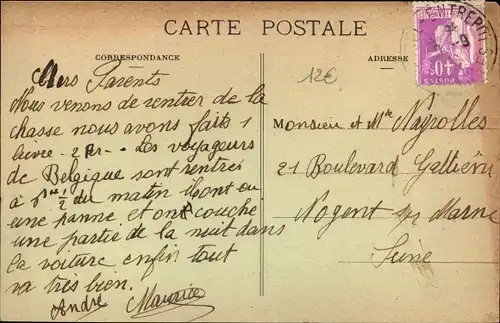 CARTE POSTALE
CORRESPONDANCE
ADRESSE
12€
ENTREPOT
40
POSTES
Chers Parents
Nous venons de rentrer de la
chasse nous avons faits 1
lièvre - 2 Les voyageurs
de Belgique sont rentrés
à 1/2 du matin ont eu
une panne et ont couché
une partie de la nuit dans
la voiture enfin tout
va très bien.
André Maurice
Monsieur et Mme Nayrolles
21 Boulevard Galliéni
Nogent sur Marne
Seine